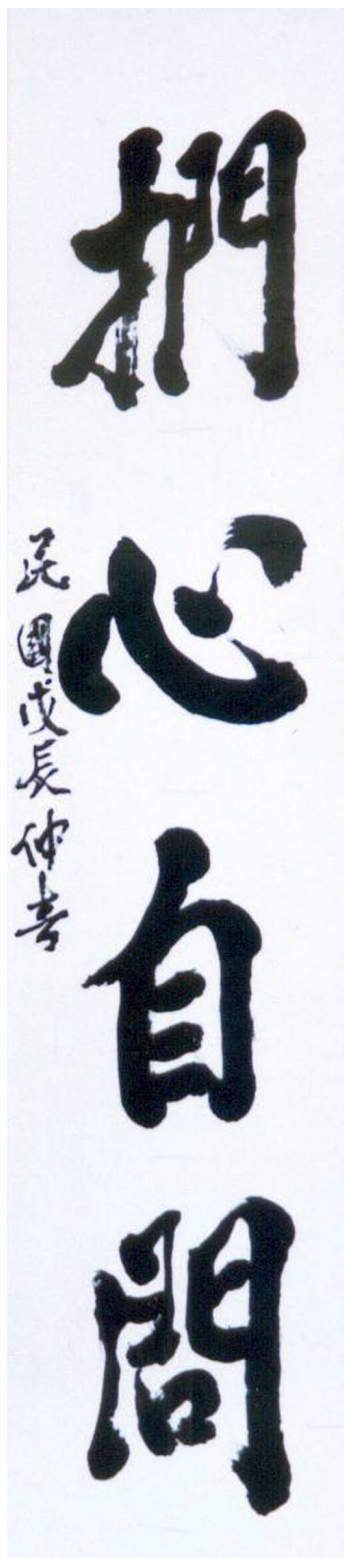 捫心自問
民國戊辰仲春